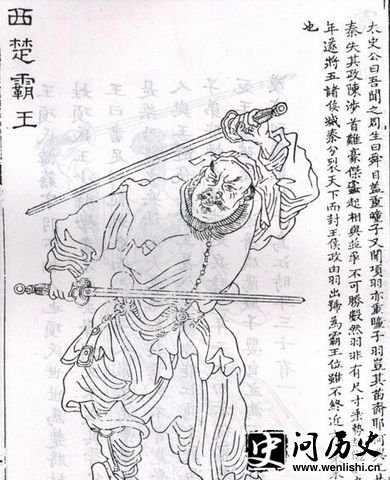 太史公曰吾聞之周生曰舜目蓋重瞳子又聞項羽亦重瞳子羽豈其苗裔耶
秦失其政陳涉首難豪傑蠭起相與並爭不可勝數然羽非有尺寸乘
年遂將五諸侯滅秦分裂天下而封王侯政由羽出號為霸王位雖不終近
也
西楚霸王
问历史
www.wenlishi.cn